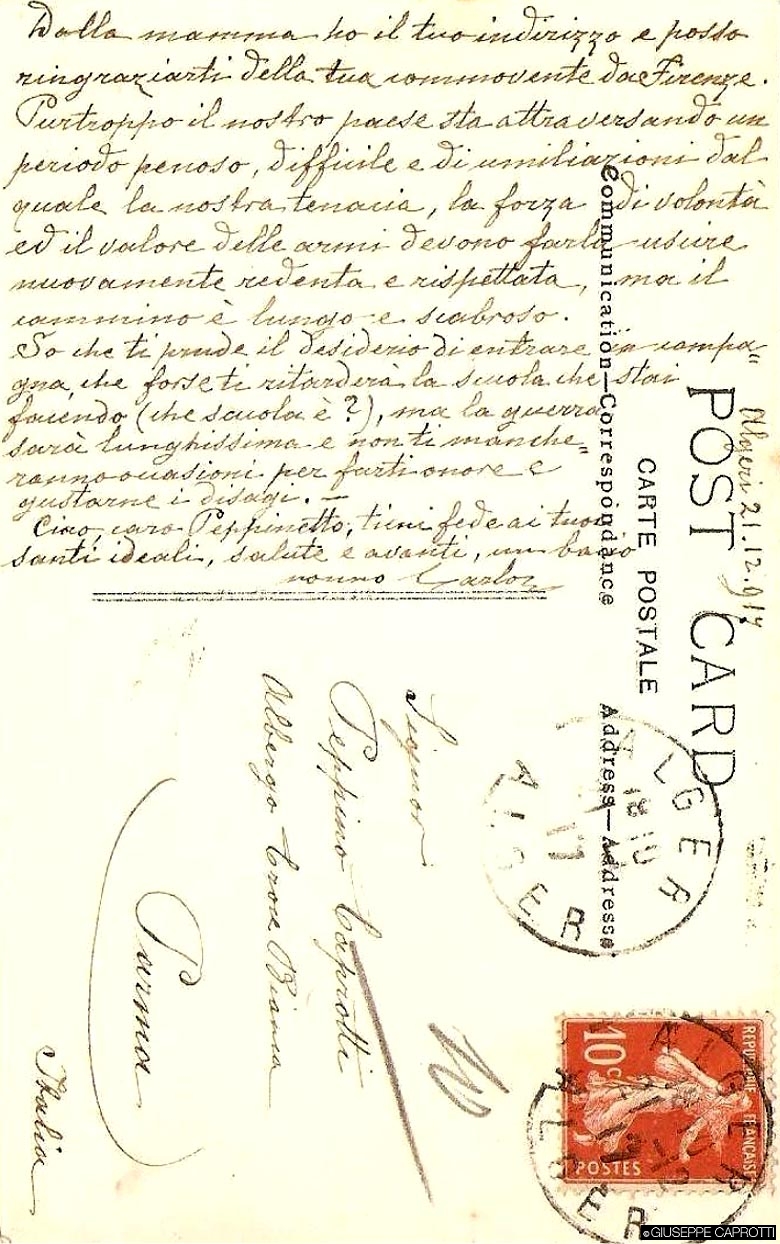 Dalla mamma ho il tuo indirizzo e posso
ringraziarti della tua commovente da Firenze.
Purtroppo il nostro paese sta attraversando un
periodo penoso, difficile e di umiliazioni dal
quale la nostra tenacia, la forza di volontà
ed il valore delle armi devono farlo uscire
nuovamente redenta e rispettata, ma il
cammino è lungo e scabroso.
So che ti prude il desiderio di entrare in campa"
gna, che forse ti ritarderà la scuola che stai
facendo (che scuola è?), ma la guerra
sarà lunghissima e non ti manche"
ranno occasioni per farti onore e
gustarne i disagi. —
Ciao, caro Peppinetto, tieni fede ai tuoi
santi ideali, salute e avanti, un bacio
nonno Carlo
Algeri 21.12.917
POST CARD
CARTE POSTALE
Communication—Correspondance
Address—Addresse
Signor
Peppino Caprotti
Albergo Croce Bianca
Parma
Italia
ALGER
18 10
17
ALGER
REPUBLIQUE FRANÇAISE
10c
POSTES
ALGER
ALGER
©GIUSEPPE CAPROTTI